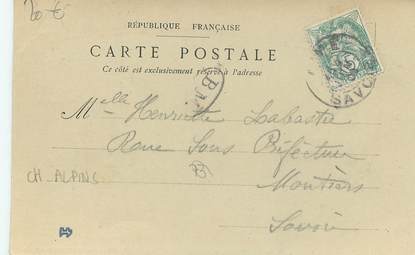 20 €
RÉPUBLIQUE FRANÇAISE
CARTE POSTALE
Ce côté est exclusivement réservé à l'adresse
SAVOIE
Melle Henriette Labastie
Rue Sous Préfecture
Moutiers
Savoie
CH_ALPINS